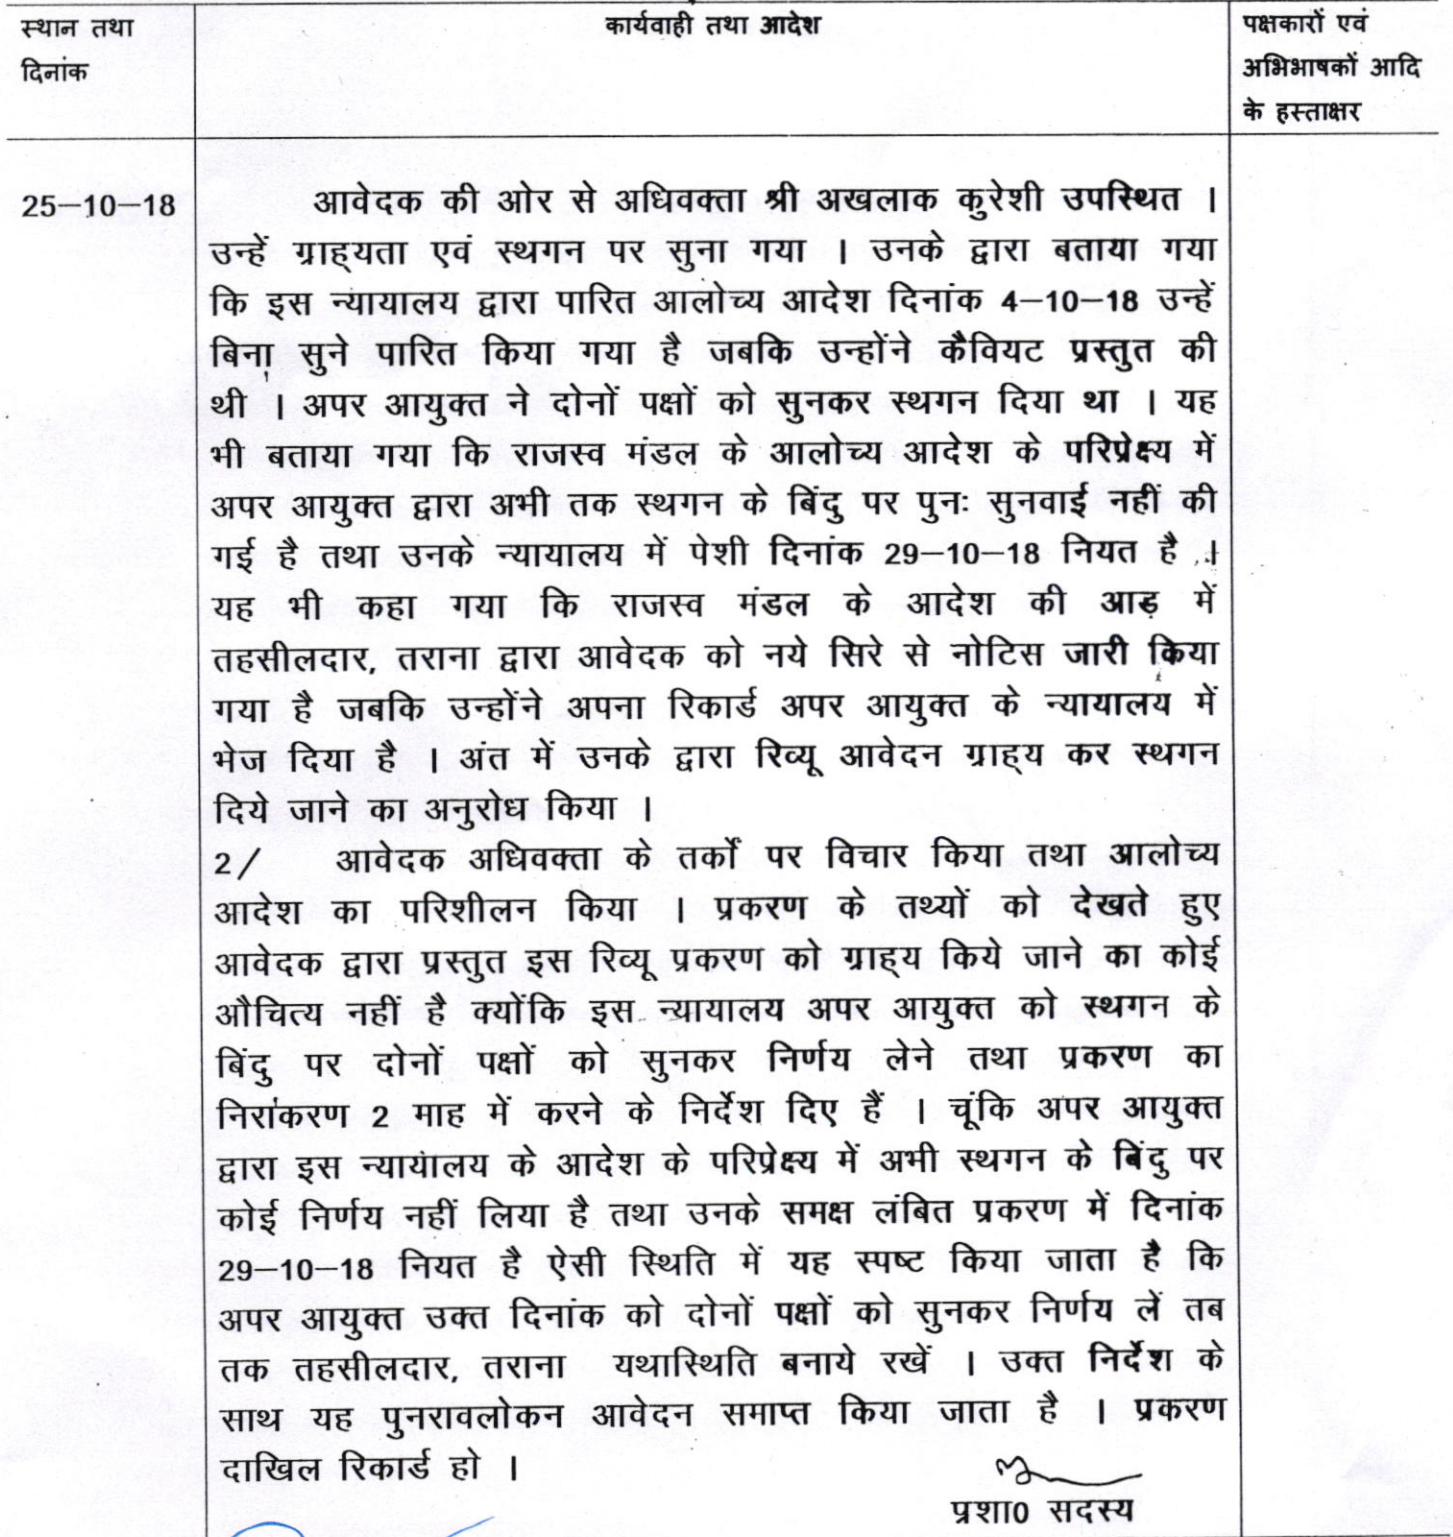 स्थान तथा
दिनांक
कार्यवाही तथा आदेश
पक्षकारों एवं
अभिभाषकों आदि
के हस्ताक्षर
25—10—18
आवेदक की ओर से अधिवक्ता श्री अखलाक कुरेशी उपस्थित ।
उन्हें ग्राह्यता एवं स्थगन पर सुना गया । उनके द्वारा बताया गया
कि इस न्यायालय द्वारा पारित आलोच्य आदेश दिनांक 4—10—18 उन्हें
बिना सुने पारित किया गया है जबकि उन्होंने कैवियट प्रस्तुत की
थी । अपर आयुक्त ने दोनों पक्षों को सुनकर स्थगन दिया था । यह
भी बताया गया कि राजस्व मंडल के आलोच्य आदेश के परिप्रेक्ष्य में
अपर आयुक्त द्वारा अभी तक स्थगन के बिंदु पर पुनः सुनवाई नहीं की
गई है तथा उनके न्यायालय में पेशी दिनांक 29—10—18 नियत है ।
यह भी कहा गया कि राजस्व मंडल के आदेश की आड़ में
तहसीलदार, तराना द्वारा आवेदक को नये सिरे से नोटिस जारी किया
गया है जबकि उन्होंने अपना रिकार्ड अपर आयुक्त के न्यायालय में
भेज दिया है । अंत में उनके द्वारा रिव्यू आवेदन ग्राह्य कर स्थगन
दिये जाने का अनुरोध किया ।
2/ आवेदक अधिवक्ता के तर्कों पर विचार किया तथा आलोच्य
आदेश का परिशीलन किया । प्रकरण के तथ्यों को देखते हुए
आवेदक द्वारा प्रस्तुत इस रिव्यू प्रकरण को ग्राह्य किये जाने का कोई
औचित्य नहीं है क्योंकि इस न्यायालय अपर आयुक्त को स्थगन के
बिंदु पर दोनों पक्षों को सुनकर निर्णय लेने तथा प्रकरण का
निराकरण 2 माह में करने के निर्देश दिए हैं । चूंकि अपर आयुक्त
द्वारा इस न्यायालय के आदेश के परिप्रेक्ष्य में अभी स्थगन के बिंदु पर
कोई निर्णय नहीं लिया है तथा उनके समक्ष लंबित प्रकरण में दिनांक
29—10—18 नियत है ऐसी स्थिति में यह स्पष्ट किया जाता है कि
अपर आयुक्त उक्त दिनांक को दोनों पक्षों को सुनकर निर्णय लें तब
तक तहसीलदार, तराना यथास्थिति बनाये रखें । उक्त निर्देश के
साथ यह पुनरावलोकन आवेदन समाप्त किया जाता है । प्रकरण
दाखिल रिकार्ड हो ।
प्रशा0 सदस्य